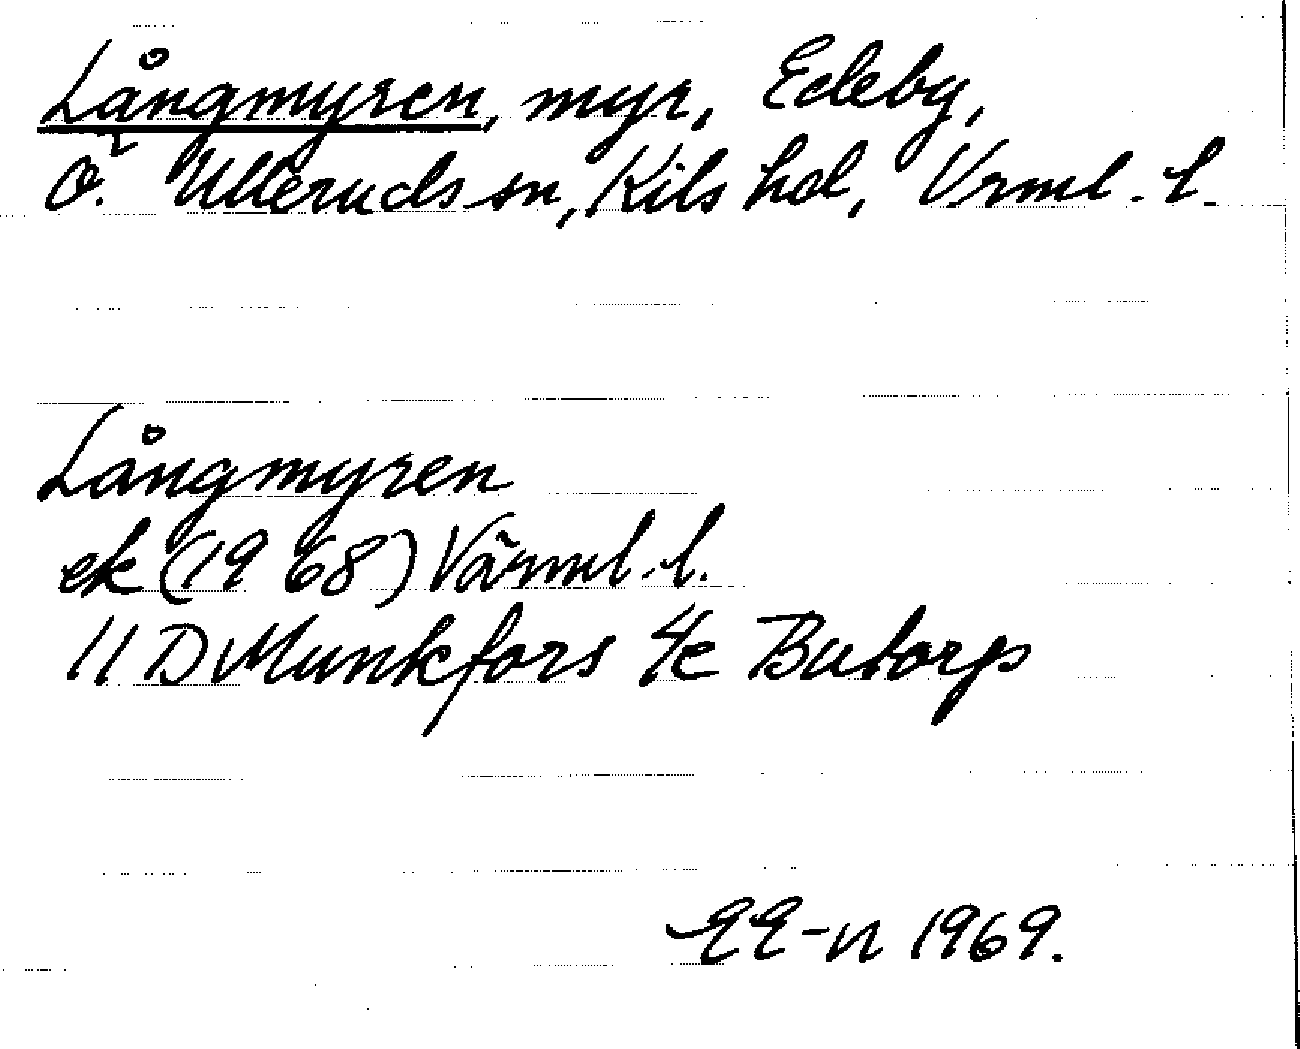 Långmyren, myr, Edeby,
Ö. Ulleruds sn, Kils hd, Vrml. l.
Långmyren
ek (1968) Värml. l.
11 D Munkfors 4c Butorp
EE-n 1969.